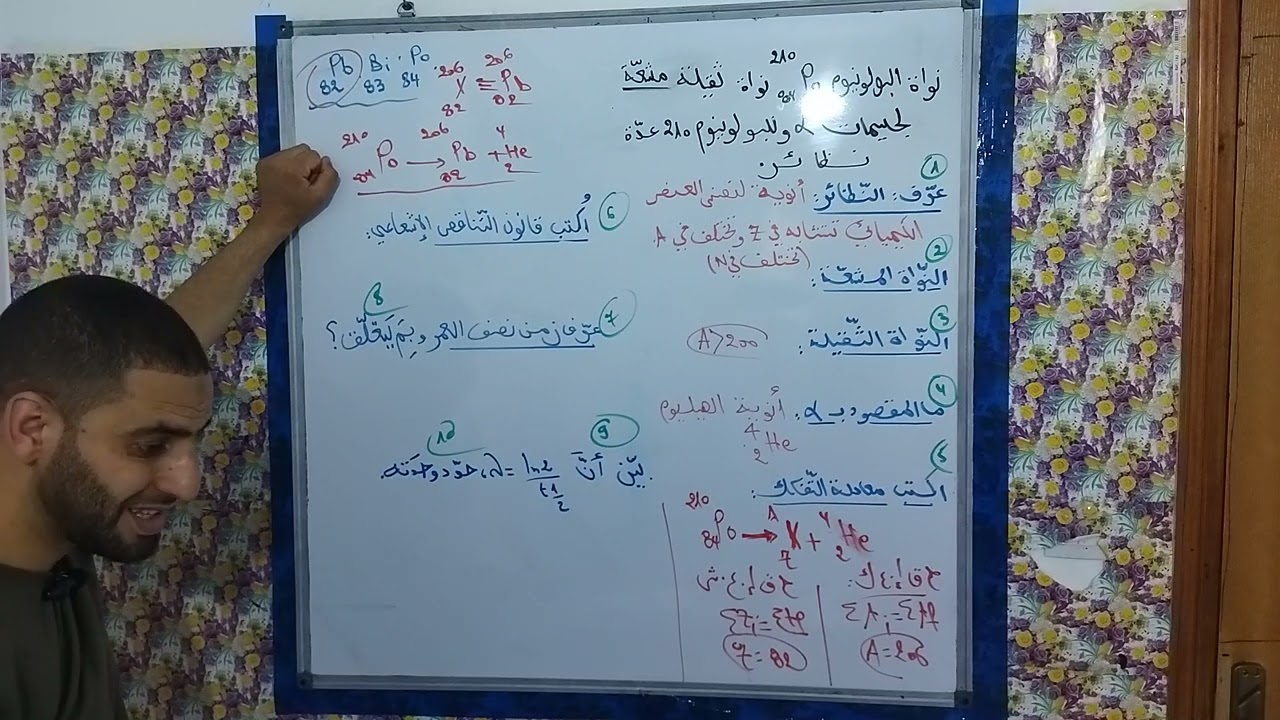 نواة البولونيوم ²¹⁰₈₄Po نواة ثقيلة مشعّة
لجسيمات α وللبولونيوم 210 عدّة
نظائر.
1
عرّف: النّظائر: أنوية لنفس العنصر
الكيميائي تتشابه في Z وتختلف في A.
(تختلف في N)
2
النّواة المشعّة:
3
النّواة الثّقيلة: A>200
4
ما المقصود بـ α: أنوية الهيليوم
⁴₂He
5
اكتب معادلة التّفكك:
²¹⁰₈₄Po → ᴬ_Z X + ⁴₂He
ح ق إ ع ك:
ΣAi = ΣAf
A = 206
ح ق إ ع ش
ΣZi = ΣZf
Z = 82
Pb Bi Po
82 83 84
²⁰⁶₈₂X ≡ ²⁰⁶₈₂Pb
²¹⁰₈₄Po → ²⁰⁶₈₂Pb + ⁴₂He
6
أُكتب قانون التّناقص الإشعاعي:
7
عرّف زمن نصف العمر وبِمَ يَتعلّق؟
8
9
بيّن أنّ λ = ln2 / t1/2، حدّد وحدته.
10